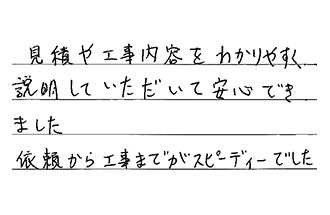 見積や工事内容をわかりやすく
説明していただいて安心でき
ました
依頼から工事までがスピーディーでした